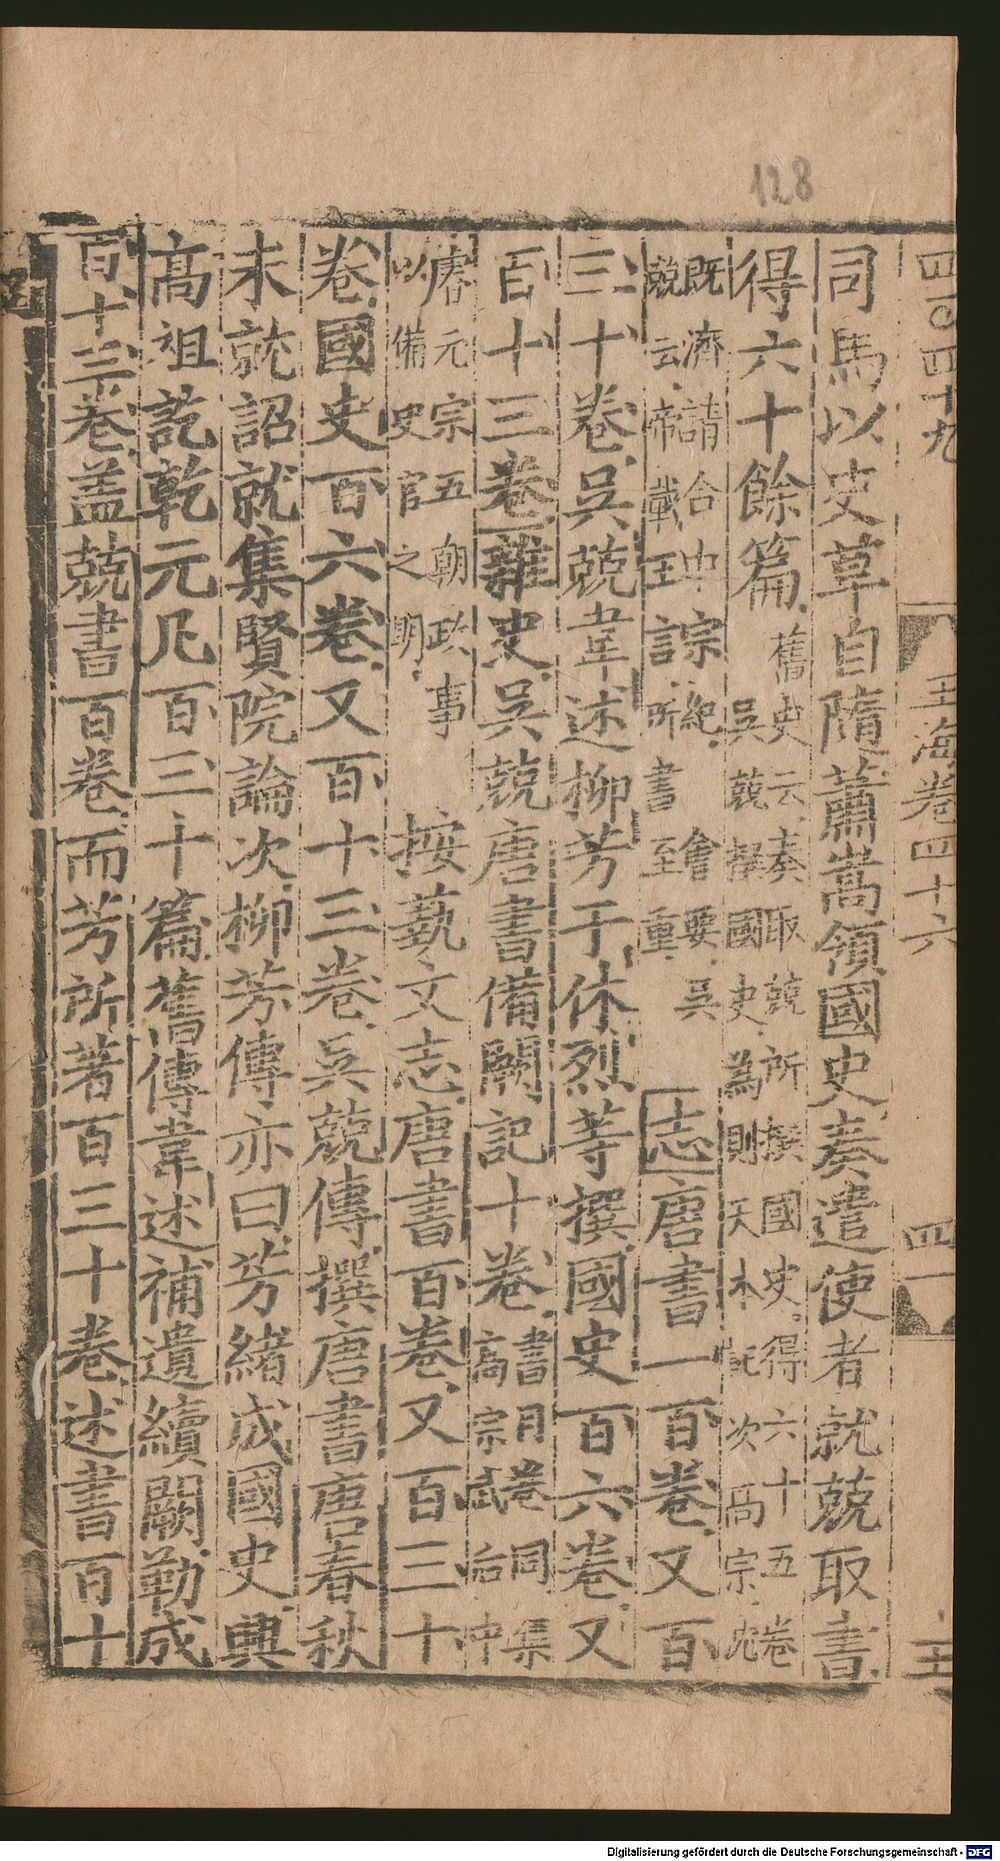 128
四百四十九
玉海卷四十六
四一
司馬以史草自隨蕭嵩領國史奏遣使者就兢取書
得六十餘篇舊史云奏取兢所撰國史得六十五卷
吳兢撰國史為則天本紀次高宗
既濟請合中宗紀會要吳
兢云帝載王誴所書至重
志唐書一百卷又百
三十卷吳兢韋述柳芳于休烈等撰國史百六卷又
百十三卷雜史吳兢唐書備闕記十卷書目卷同集
高宗武后中
睿元宗五朝政事
以備史官之
按藝文志唐書百卷又百三十
卷國史百六卷又百十三卷吳兢傳撰唐書唐春秋
未就詔就集賢院論次柳芳傳亦曰芳緒成國史興
高祖訖乾元凡百三十篇舊傳韋述補遺續闕勒成
百十三卷蓋兢書百卷而芳所著百三十卷述書百十
Digitalisierung gefördert durch die Deutsche Forschungsgemeinschaft - DFG